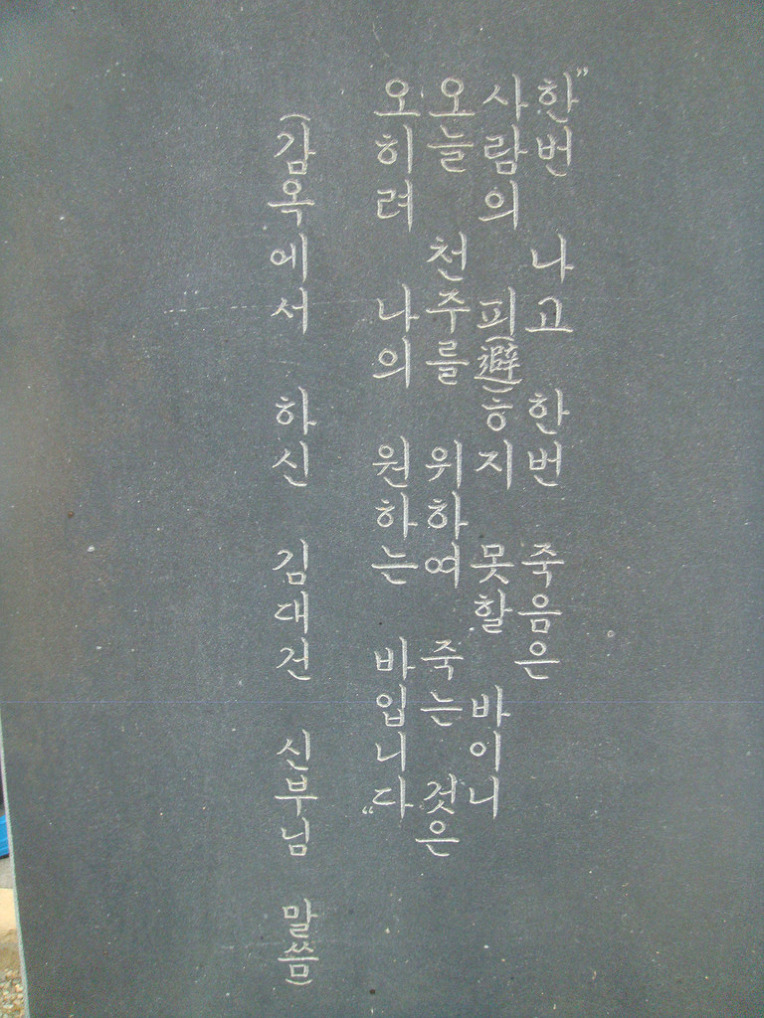 "한번 나고 한번 죽음은
사람의 피(避)하지 못할 바이니
오늘 천주를 위하여 죽는 것은
오히려 나의 원하는 바입니다"
(감옥에서 하신 김대건 신부님 말씀)